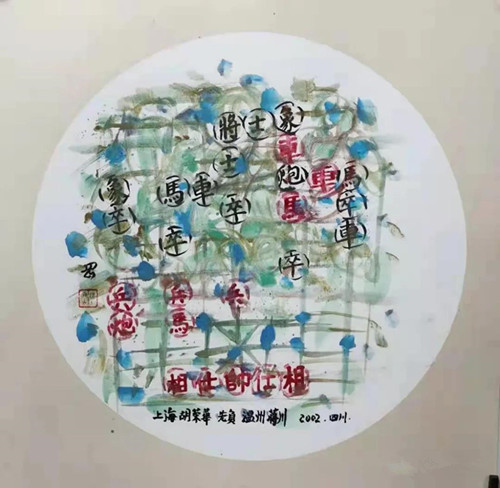 將 士 象
士 車
象 馬 車 炮 車 馬
卒 卒 馬 卒
卒 車
卒
兵 兵 兵
炮 馬
相 仕 帥 仕 相
上海胡荣華 先负 温州蒋川 2002.四川.